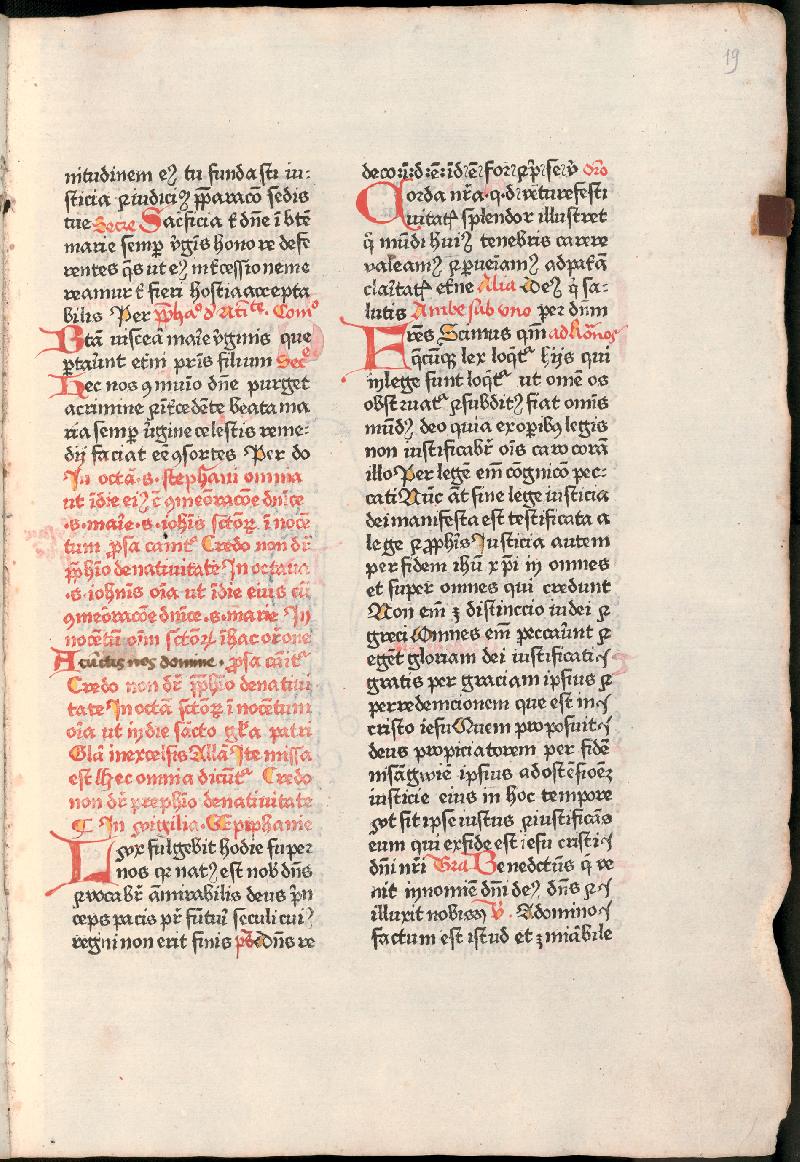 19
nitudinem eꝫ tu fundasti iu-
sticia ⁊ iudiciꝫ p̄paraco᷑ sedis
tue Secre Sac̓ficia t̓ dn̄e ī btē
marie semp v̓gīs honore defe
rentes q̄s ut eꝫ int̓cessione me
reamur t̓ fieri hostia accepta
bilis Per Com̄
Btā viscea mar̓ie v̓ginis que
ptaūnt et̓ni pr̄is filium
Hec nos ꝯmuīo dn̄e purget
a crimine ⁊ īt̓cedēte beata ma
ria semp ūgine celestis reme-
dij faciat eē ꝯsortes Per do
In octā .s. stephani omnia
ut ī die eiꝰ c̄ ꝯmeōracōe dn̄ice
.s. marie .s. ioh̄is sctōꝝ īnocē
tum p̄sa cānit̓ Credo non dr̄
p̄fhīo de natiuitate In octaua
.s. ioh̄nis oīa ut ī die eius cū
ꝯmeōracōe dn̄ice .s. marie In
nocētū oīm sctōꝝ ī hac or̄one
A cūctis nos domine . p̄sa cānit̓
Credo non dr̄ p̄fhīo de natiui
tate In octā sctōꝝ īnocētum
oīa ut in die sācto gl̓ia patri
Glā in excelsis Allā Ite missa
est hec omnia dicūt̓ Credo
non dr̄ prephīo de natiuitate
In vigilia Epiphanie
Lvx fulgebit hodie super
nos q̄ natꝰ est nob̄ dn̄s
⁊ vocabr̄ am̄irabilis deus p̄n
ceps pacis pr̄ futūi seculi cuiꝰ
regni non erit finis p̄s dn̄s re
oro᷑
Corda nr̄a .q.d.
uitatꝭ splendor illustret
q̄ mūdi huiꝰ tenebris carere
valeamꝰ ⁊ pueīamꝰ ad pat̓ā
cla̓itatꝭ et̓ne Alia Deꝰ q̄ sa-
lutis Ambe sub vno per dūm
Fr̄es Scimus qm̄ ad Romos
q̄cūqꝫ lex loqt̓ hijs qui
in lege sunt loqt̓ ut om̄e os
obstruat̓ ⁊ subditꝰ fiat om̄is
mūdꝰ deo quia ex opibꝰ legis
non iustificabr̄ oīs caro corā
illo Per legē em̄ cognico᷑ pec-
cati Nūc āt sine lege iusticia
dei manifesta est testificata a
lege ⁊ p̄ph̄is Iusticia autem
per fidem ihū xpi in omnes
et super omnes qui credunt
Non em̄ ꝫ distinccio iudei ⁊
greci Omnes em̄ peccaūnt ⁊
egēt gloriam dei iustificati
gratis per graciam ipsius ⁊
per redemcionem que est in
cristo iesu Quem proposuit
deus propiciatorem per fidē
in sāgwīe ipsius ad ostēsioēꝫ
iusticie eius in hoc tempore
vt sit ipse iustus ⁊ iustificās
eum qui ex fide est iesu cristi
dn̄i nr̄i Gra Benedctūs q̄ ve
nit in nomīe dn̄i deꝰ dn̄s ⁊
illuxit nobis V̓. A domino
factum est istud et ꝫ mīabile